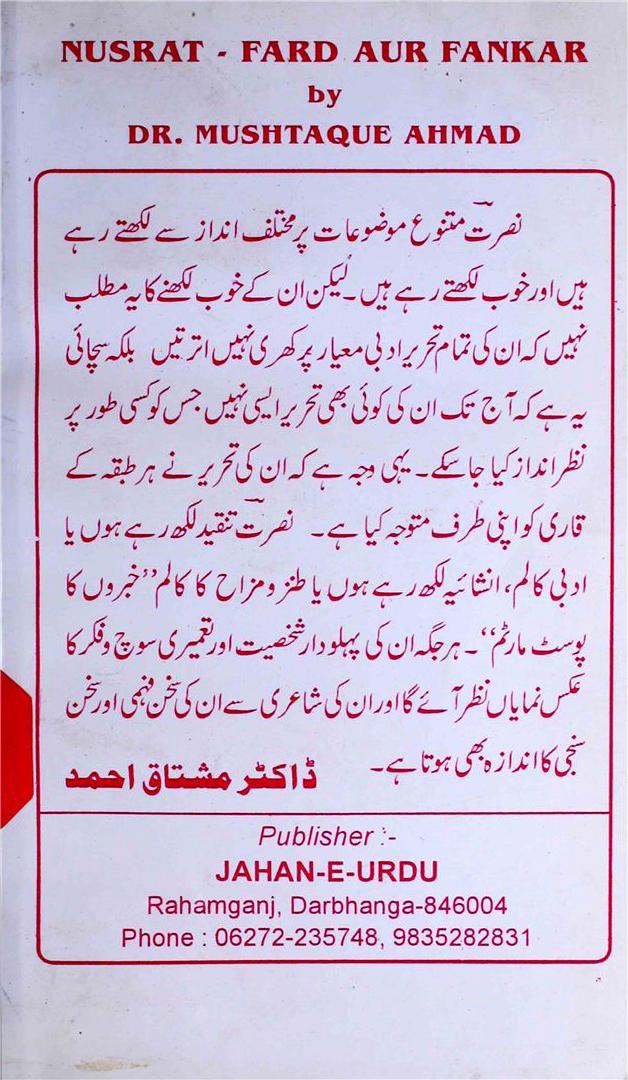 NUSRAT - FARD AUR FANKAR
by
DR. MUSHTAQUE AHMAD
نصرت متنوع موضوعات پر مختلف انداز سے لکھتے رہے
ہیں اور خوب لکھتے رہے ہیں۔ لیکن ان کے خوب لکھنے کا یہ مطلب
نہیں کہ ان کی تمام تحریر ادبی معیار پر کھری نہیں اترتیں بلکہ سچائی
یہ ہے کہ آج تک ان کی کوئی بھی تحریر ایسی نہیں جس کو کسی طور پر
نظر انداز کیا جا سکے۔ یہی وجہ ہے کہ ان کی تحریر نے ہر طبقہ کے
قاری کو اپنی طرف متوجہ کیا ہے۔ نصرت تنقید لکھ رہے ہوں یا
ادبی کالم، انشائیہ لکھ رہے ہوں یا طنز و مزاح کا کالم ”خبروں کا
پوسٹ مارٹم“۔ ہر جگہ ان کی پہلو دار شخصیت اور تعمیری سوچ و فکر کا
عکس نمایاں نظر آئے گا اور ان کی شاعری سے ان کی سخن فہمی اور سخن
سنجی کا اندازہ بھی ہوتا ہے۔
ڈاکٹر مشتاق احمد
Publisher :-
JAHAN-E-URDU
Rahamganj, Darbhanga-846004
Phone : 06272-235748, 9835282831